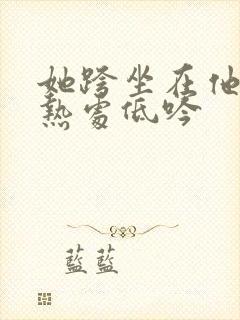 她跨坐在他
熱處低吟
藍藍